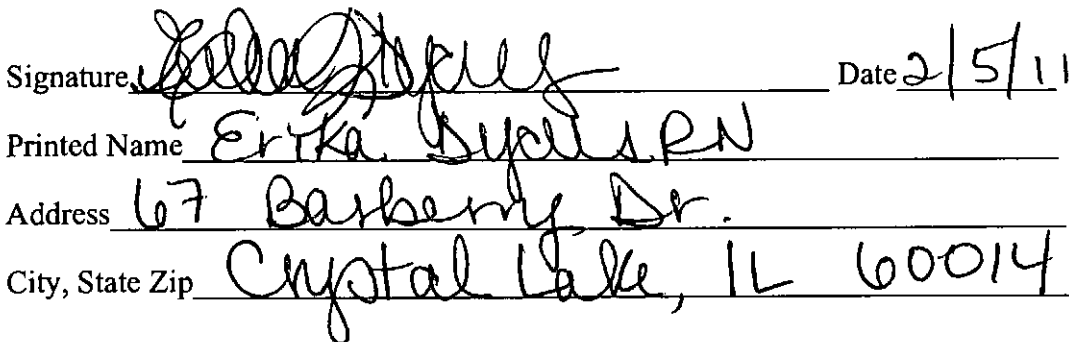 Signature Date 2/5/11
Printed Name Erika RN
Address 67 Barberry Dr.
City, State Zip Crystal Lake, IL 60014